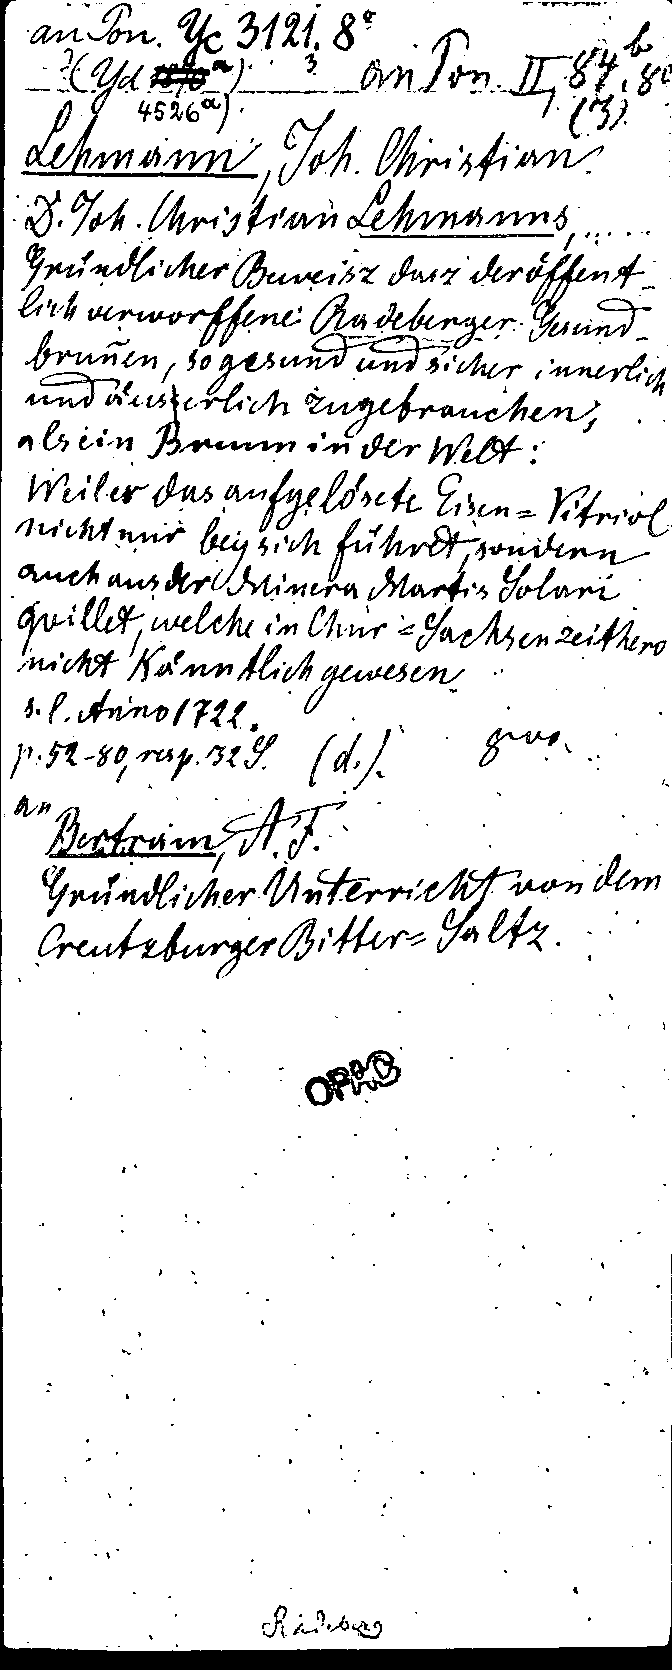 an Pon. Yc 3121. 8°
?(Yd a) 3 an Pon. II, 84 b, 8°
4526 a). (3).
Lehmann, Joh. Christian.
D. Joh. Christian Lehmanns, .....
Gründlicher Beweisz dasz der öffent-
lich verworffene Radeberger Gesund-
brunen, so gesund und sicher innerlich
und äusserlich zugebrauchen,
als ein Brunn in der Welt:
Weil er das aufgelösete Eisen=Vitriol
nicht nur bey sich führet, sondern
auch aus der Minera Martis Solari
qvillet, welche in Chur=Sachsen zeithero
nicht känntlich gewesen.
s. l. Anno 1722.
p. 52-80, resp. 32 S. (d.).
an
Bertram, A. F.
Gründlicher Unterricht von dem
Creutzburger Bitter=Saltz.
OPAC
Radeberg